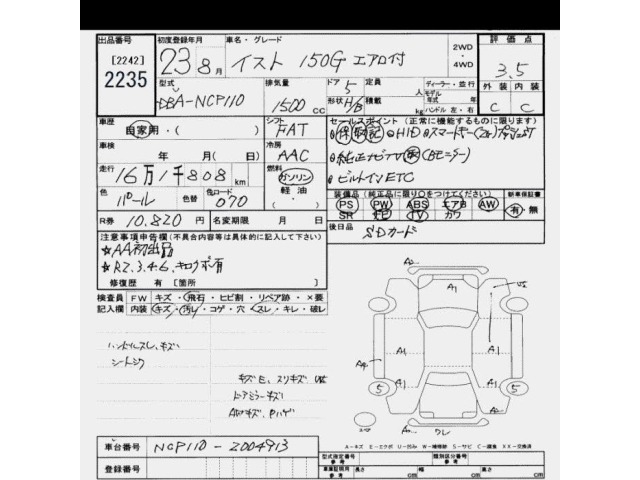 出品番号 初度登録年月 車名・グレード 2WD・4WD 評価点
[2242] 23年8月 イスト 150G エアロ付 3.5
2235 型式 排気量 ドア 5 定員 人 ディーラー・並行 外装 内装
DBA-NCP110 1500CC 形状 H/B 積載 kg モデル 年式 年 ハンドル 左・右 C C
車歴 自家用・( ) シフト FAT セールスポイント(正常に機能するものに限ります)
車検 年 月(日) 冷房 AAC
走行 16万1千808km 燃料 ガソリン・軽油・
純正ナビTV
ビルトインETC
色 パール 色替 色コード 070
装備品(純正品に限り○をつけてください) 新車保証書
PS PW ABS エアB AW 有・無
SR ナビ TV カワ
R券 10,820円 名変期限 月 日
後日品 SDカード
注意事項申告欄(不具合内容等は具体的に記入して下さい)
★AA初出品
★R2.3.4.6.キロクボ有
修復歴 有[箇所 ]
検査員記入欄 FW キズ・飛石・ヒビ割・リペア跡・×要
内装 キズ・汚れ・コゲ・穴・スレ・キレ・破レ
ハンドルスレ、キズ
シートシワ
キズE、スリキズ U5
ドアミラーキズ
AWキズ、Pハゲ
A2 A1 U5
A1 A1 A1
A2
5 5
A1
A2 ワレ
A-キズ E-エクボ U-凹み W-補修跡 S-サビ C-腐食 XX-交換済
車台番号 NCP110-2004913
登録番号
型式指定番号 参考 類別区分番号 参考
車庫証明用 参考 長さ cm 幅 cm 高さ cm